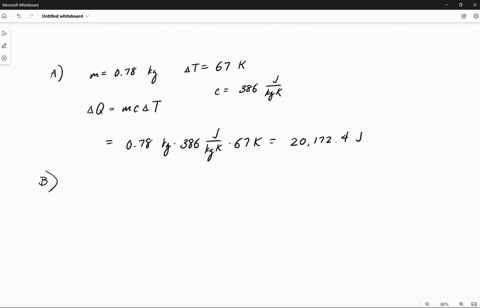 Microsoft Whiteboard
Untitled whiteboard
A) m = 0.78 kg ΔT = 67 K
c = 386 J/kgK
ΔQ = mcΔT
= 0.78 kg · 386 J/kgK · 67 K = 20,172.4 J
B)
80%